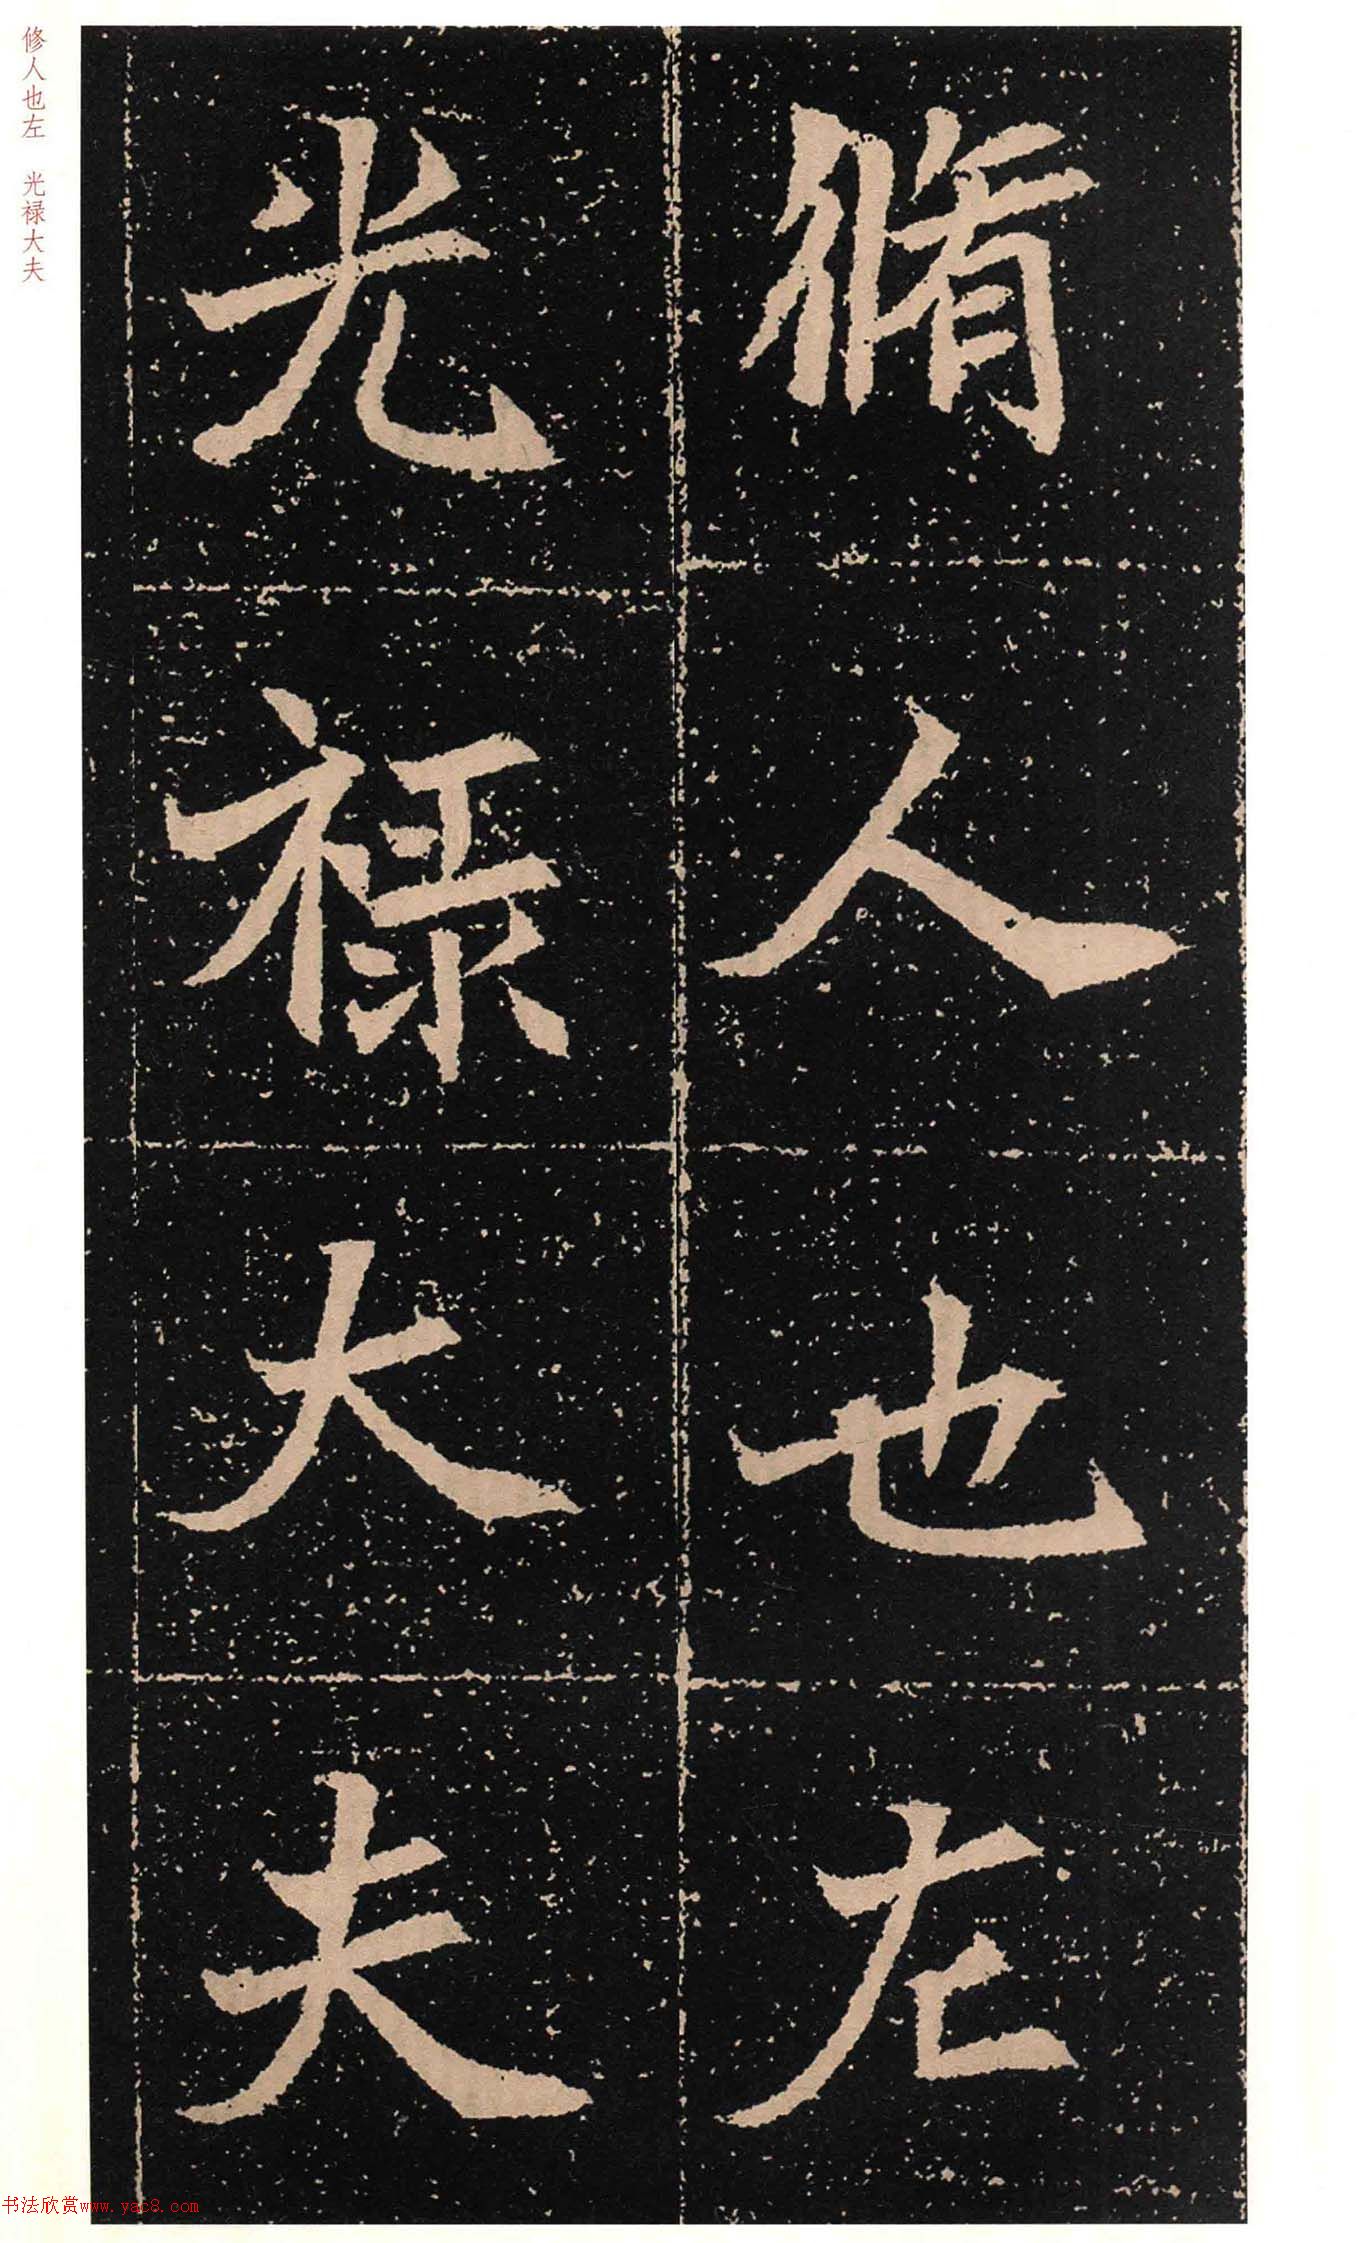 脩人也左
光禄大夫
修人也左 光禄大夫
书法欣赏www.yac8.com